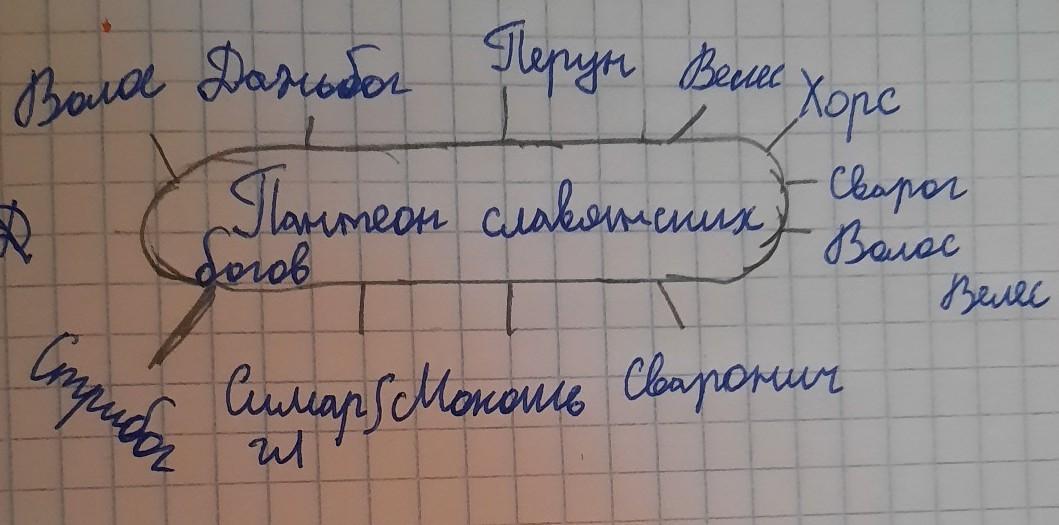 Волос Дажьбог Перун Велес Хорс
Пантеон славянских
богов
Сварог
Волос
Велес
Стрибог
Симар Мокошь Сварожич
гл